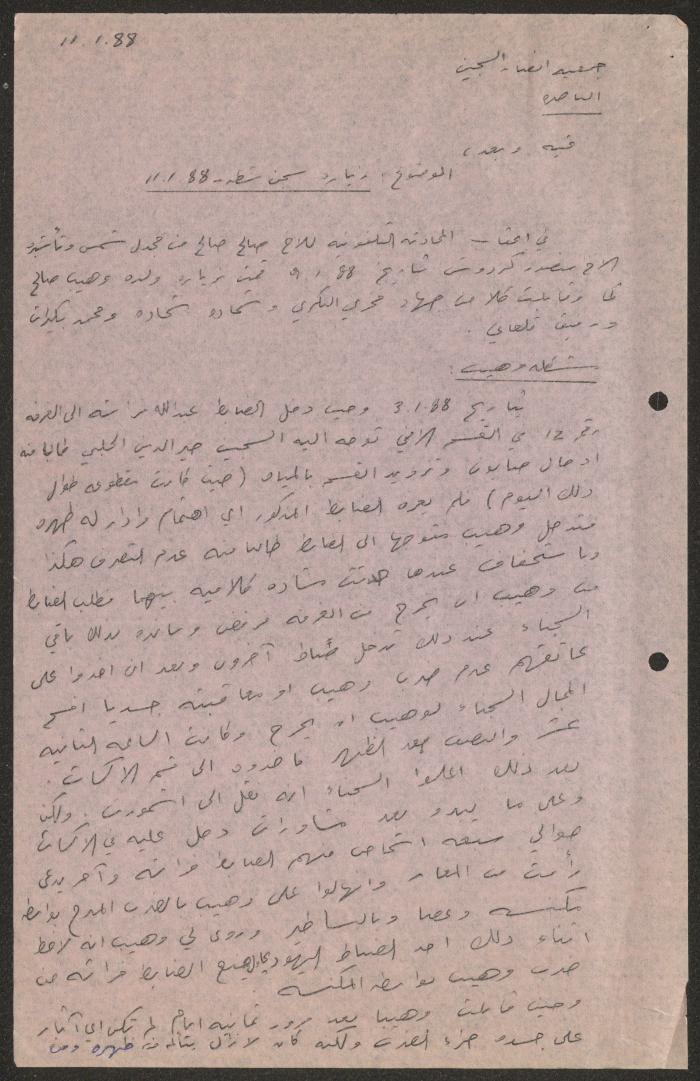 11.1.88
جمعيه انصار السجين
الناصره
تحيه وبعد،
الموضوع: زيارة سجن شطه 11.1.88
في اعقاب المحادثه التلفونيه للاخ صالح صالح من مجدل شمس وتأشيرة
الاخ منصور كردوش بتاريخ 9.1.88 قمت بزيارة ولده وهيب صالح
كما وقابلت كلا من جهاد البكري وشحاده شحاده ومحمد
ورفيق
مشكله وهيب:
بتاريخ 3.1.88 وحين دخل الضابط عبدالله الى الغرفه
رقم 12 في القسم الامني توجه اليه السجين خير الدين الحلبي طالبا منه
ادخال صابون وتزويد القسم بالمياه (حيث كانت مقطوعه طوال
ذلك اليوم) فلم يعره الضابط المذكور اي اهتمام وادار له ظهره
فتدخل وهيب متوجها الى الضابط طالبا منه عدم التصرف هكذا
وباستخفاف عندها حدثت مشاده كلاميه بينهما فطلب الضابط
من وهيب ان يخرج من الغرفه فرفض وسانده بذلك باقي
السجناء عند ذلك تدخل ضباط آخرون وبعد ان اخذوا على
عاتقهم عدم ضرب وهيب او معاقبته جسديا افسح
المجال السجناء لوهيب ان يخرج وكانت الساعه الثانيه
عشر والنصف بعد الظهر فاخذوه الى قسم الاكسات.
بعد ذلك اعلموا السجناء انه نقل الى اشمورت. ولكن
وعلى ما يبدو بعد مشاورات دخل عليه في الاكسات
حوالي سبعه اشخاص منهم الضابط وآخر يدعى
من المغار وانهالوا على وهيب بالضرب المبرح بواسطة
مكنسه وعصا وبالبساطير وروى لي وهيب انه لاحظ
اثناء ذلك احد الضباط اليهود الضابط من
ضرب وهيب بواسطة المكنسه.
وحين قابلت وهيبا بعد مرور ثمانيه ايام لم تكن اي آثار
على جسده جراء الضرب ولكنه كان لا زال يتألم من ظهره ومن